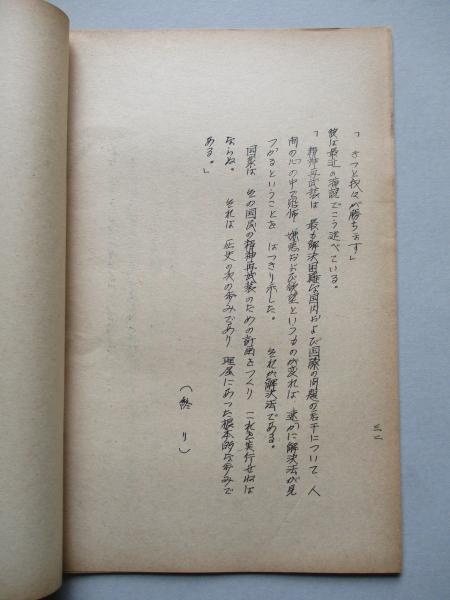 「きっと我々が勝ちます」
彼は最近の演説でこう述べている。
「精神再武装は 最も解決困難な国内および国際の問題の若干について 人
間の心の中で恐怖 嫌悪および欲望というものが変れば 速かに解決法が見
つかるということを はっきり示した。 それが解決法である。
国家は その国民の精神再武装のための計画をつくり これを実行せねば
ならぬ。 それは 歴史の次の歩みであり 理屈にあった根本的な歩みで
ある。」
(終り)
三二